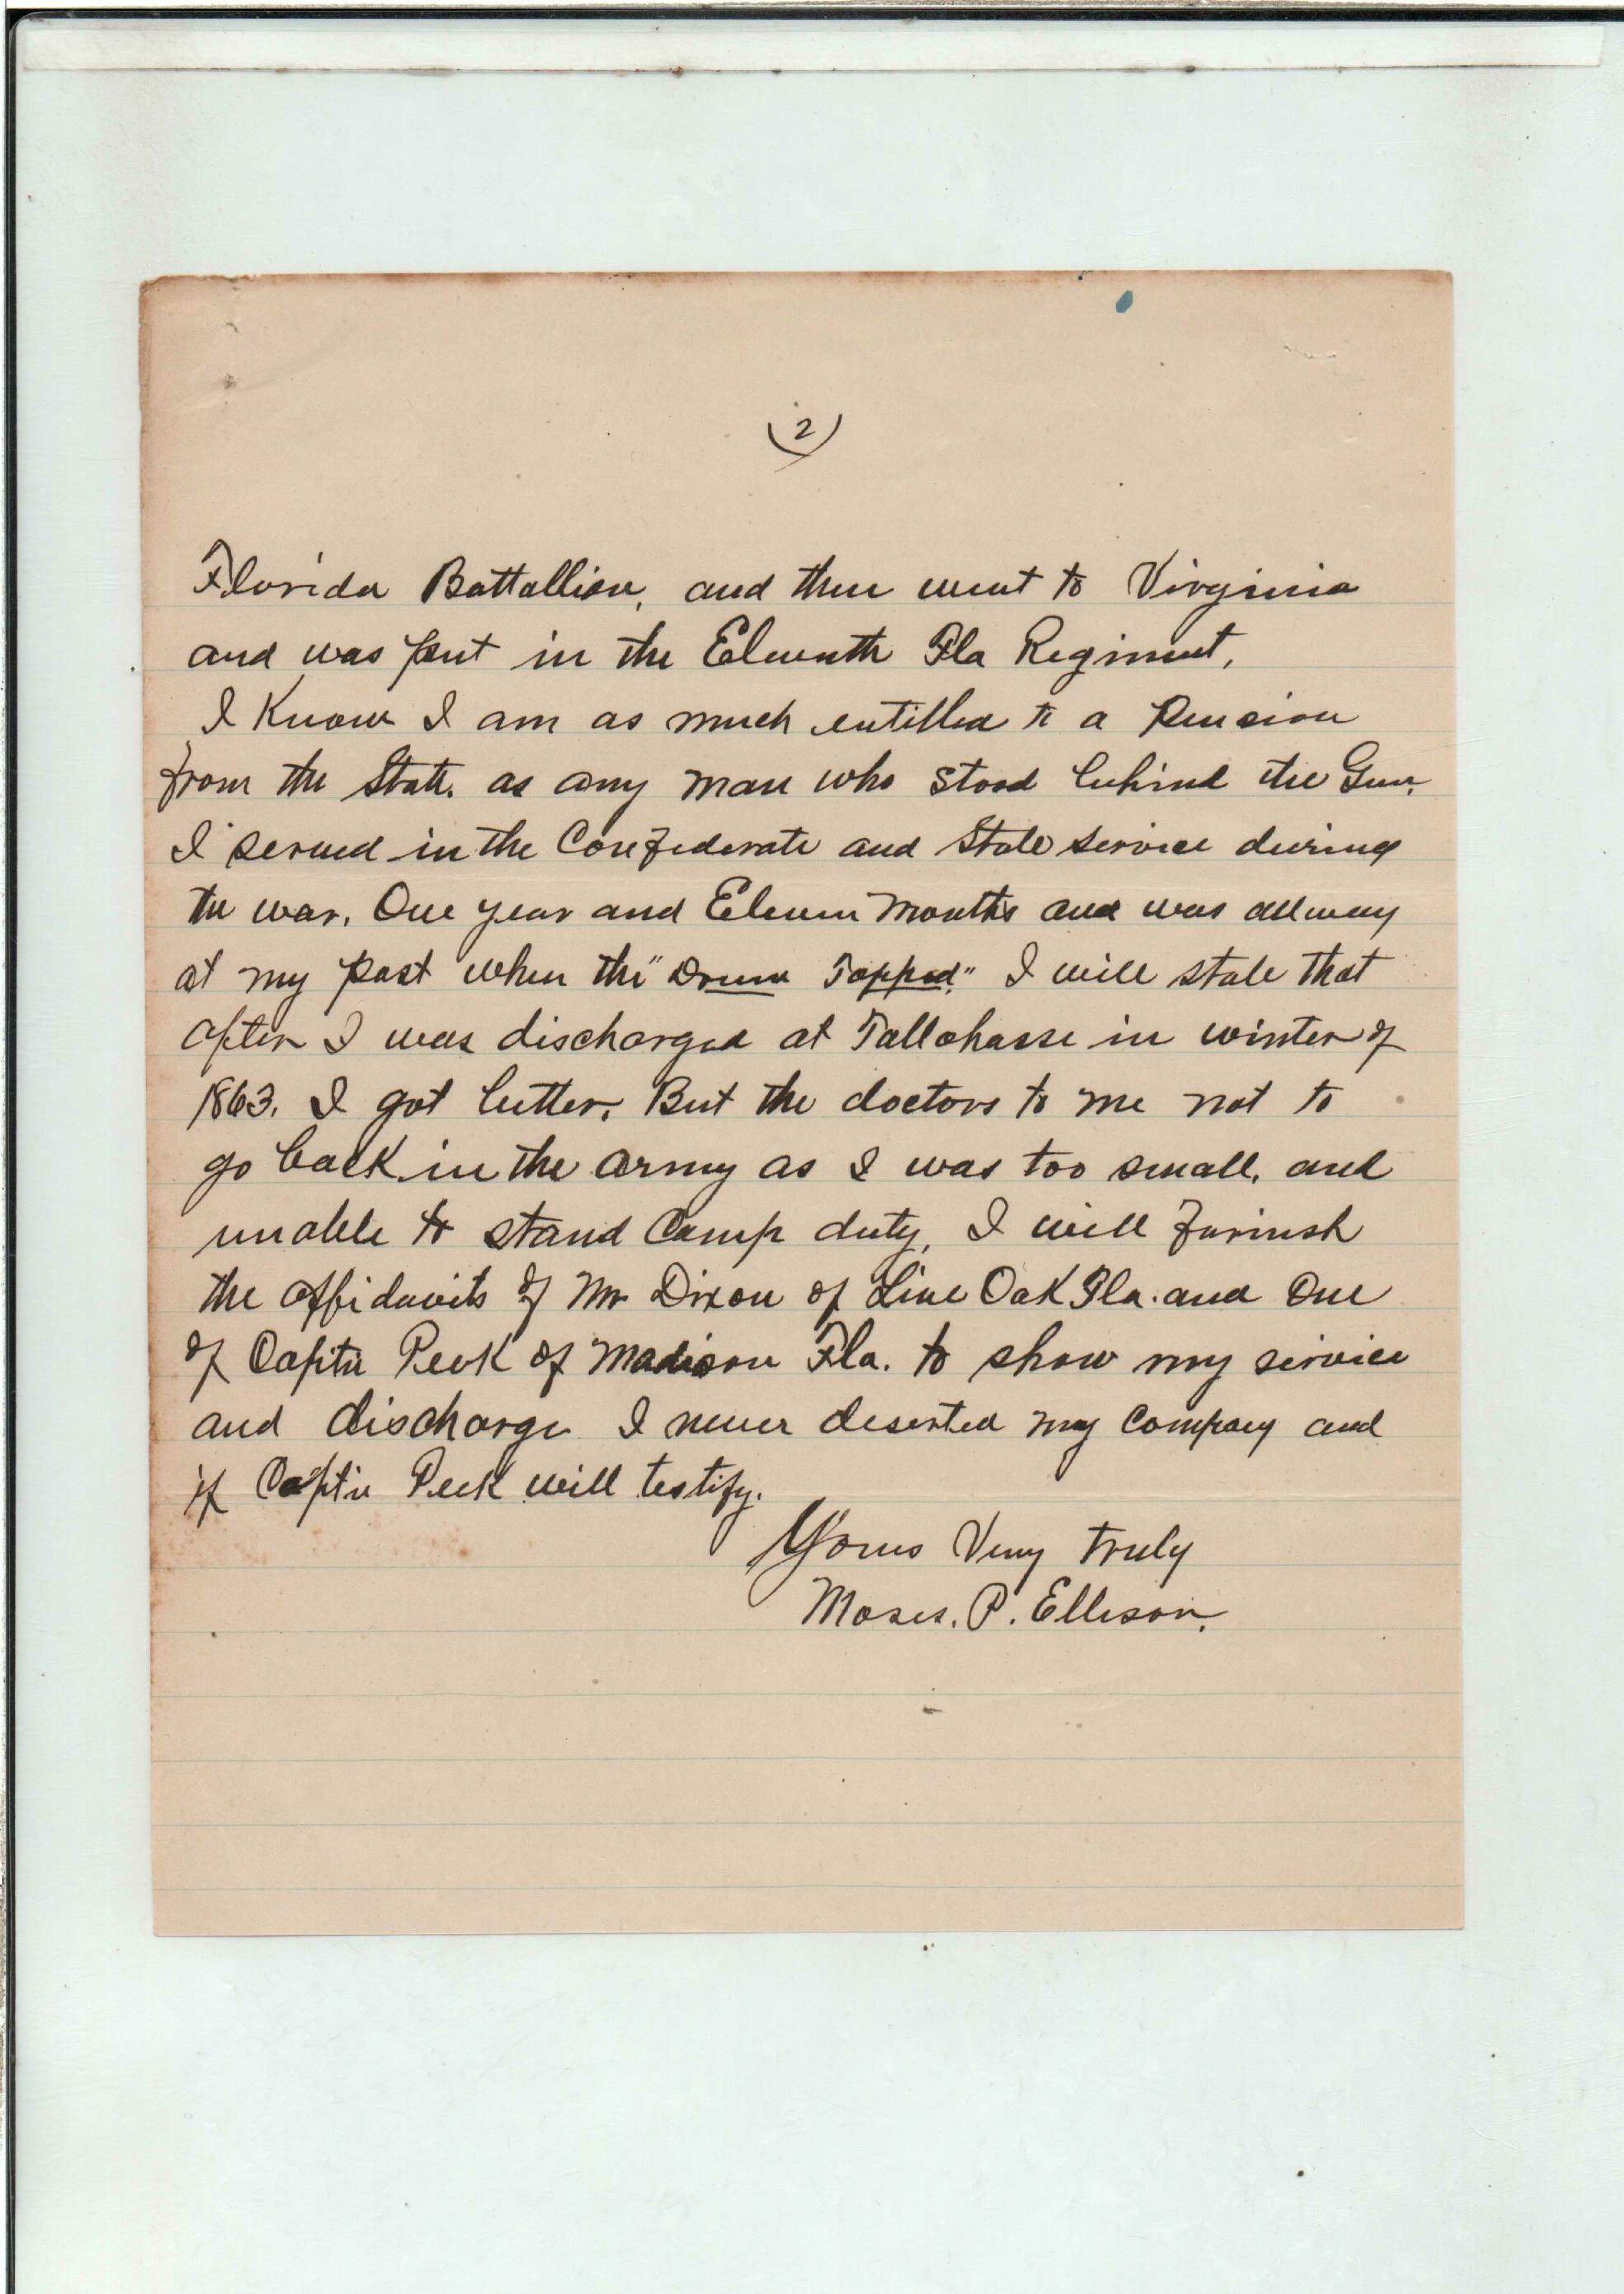 (2)
Florida Battallion, and then went to Virginia
and was put in the Eleventh Fla Regiment,
I Know I am as much entitled to a Pension
from the State. as any man who stood behind the Gun.
I served in the Confederate and State service during
the war. One year and Eleven Months and was allway
at my post when the "Drum Tapped." I will state that
after I was discharged at Tallahasse in winter of
1863. I got better. But the doctors to me not to
go back in the army as I was too small, and
unable to stand Camp duty, I will furinsh
the affidavits of Mr Dixon of Live Oak Fla. and One
of Captn Peek of Madison Fla. to show my service
and discharge I never deserted my Company and
if Captn Peek will testify.
Yours Very truly
Moses. P. Ellison.